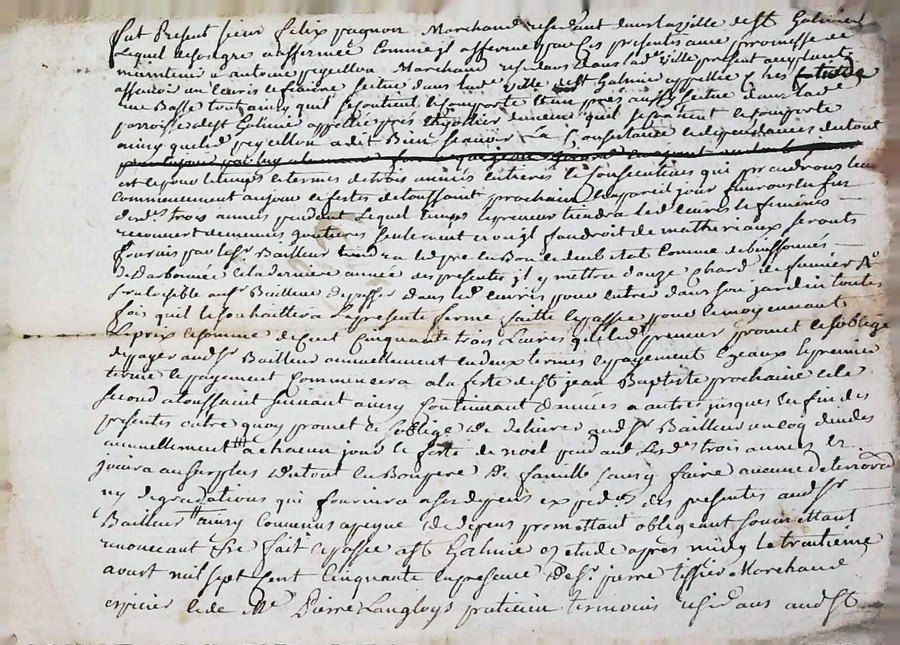 fut Present sieur felix pagnon Marchand residant dans la ville de st Galmier
Lequel de son gre a affermé Comme il afferme par ces presentes avec promesse de
maintenir a antoine peyrellon Marchand residant dans lad ville present acceptant
assavoir un ecuries et feniere scitue dans lade ville de st Galmier appellée
une Basse tout ainsy quil se contient et comporte & un pres aussy scitue dans lade
parroisse de st Galmier appellé pres quil se contient et comporte
ainsy que led peyrellon a dit Bien scavoir La Consistance et dependances du tout
est et pour le temps et termes de trois années entieres & Consecutives qui prandront leur
Commencement au jour et festes de toussaint prochain et a pareil jour finiront en fin
desd trois années pendant Lequel temps le preneur tiendra led ecuries et feniere
recouvert de menues goutieres seulement et ou il faudroit de matheriaux seront
fournis par led sr Bailleur tiendra le pre en Bon et deub etat Comme de buissonnés
& la derniere année des presentes il y mettra douze chard de fumier &
sera loisible aud sr Bailleur de passer dans led ecuries pour entrer dans son jardin toutes
fois quil le souhaittera La presente ferme faitte et passée pour et moyennant
Le prix et somme de Cent Cinquante trois Livres que led preneur promet et soblige
de payer aud sr Bailleur annuellement en deux termes et payement egeaux le premier
terme et payement Commencera a la feste de st jean Baptiste prochaine et le
second a toussaint suivant ainsy Continuant dannées a autres jusques en fin des
presentes outre quoy promet & soblige de delivrer aud sr Bailleur un coq dindes
annuellement a chacun jour et feste de noel pendant Lesd trois années &
jouira au surplus du tout en Bon pere de famille sans y faire aucune deterioraon
ny degradations qui fournira a ses depens expedn des presentes aud sr
Bailleur ainsy Convenus a peyne de depens promettant obligeant soumettant
renonceant &c fait et passé a st Galmier etude apres midy le trantieme
avust mil sept Cent Cinquante en presence de sr pierre tissier Marchand
epicier et de Me Pierre Langloys praticien temoins residans aud st